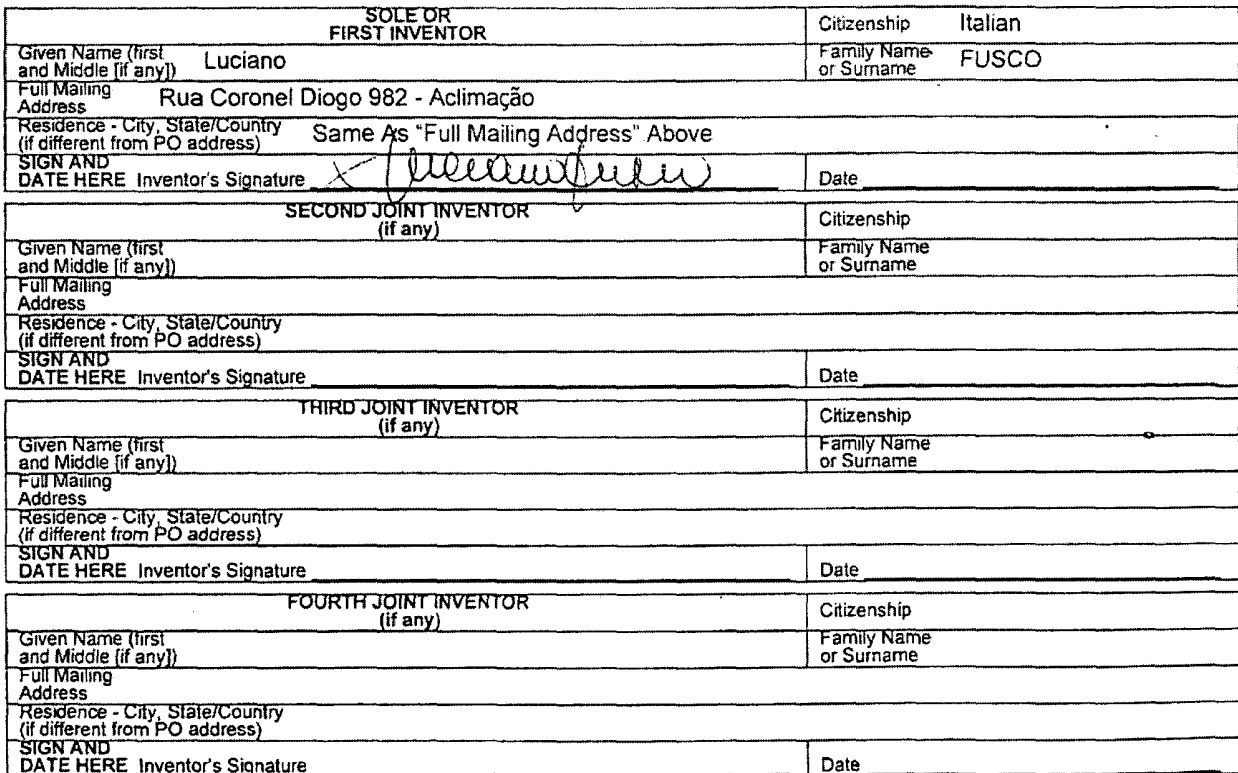 SOLE OR
FIRST INVENTOR
Citizenship Italian
Given Name (first
and Middle [if any]) Luciano
Family Name
or Surname FUSCO
Full Mailing
Address Rua Coronel Diogo 982 - Aclimação
Residence - City, State/Country
(if different from PO address) Same As "Full Mailing Address" Above
SIGN AND
DATE HERE Inventor's Signature
Date
SECOND JOINT INVENTOR
(if any)
Citizenship
Given Name (first
and Middle [if any])
Family Name
or Surname
Full Mailing
Address
Residence - City, State/Country
(if different from PO address)
SIGN AND
DATE HERE Inventor's Signature
Date
THIRD JOINT INVENTOR
(if any)
Citizenship
Given Name (first
and Middle [if any])
Family Name
or Surname
Full Mailing
Address
Residence - City, State/Country
(if different from PO address)
SIGN AND
DATE HERE Inventor's Signature
Date
FOURTH JOINT INVENTOR
(if any)
Citizenship
Given Name (first
and Middle [if any])
Family Name
or Surname
Full Mailing
Address
Residence - City, State/Country
(if different from PO address)
SIGN AND
DATE HERE Inventor's Signature
Date